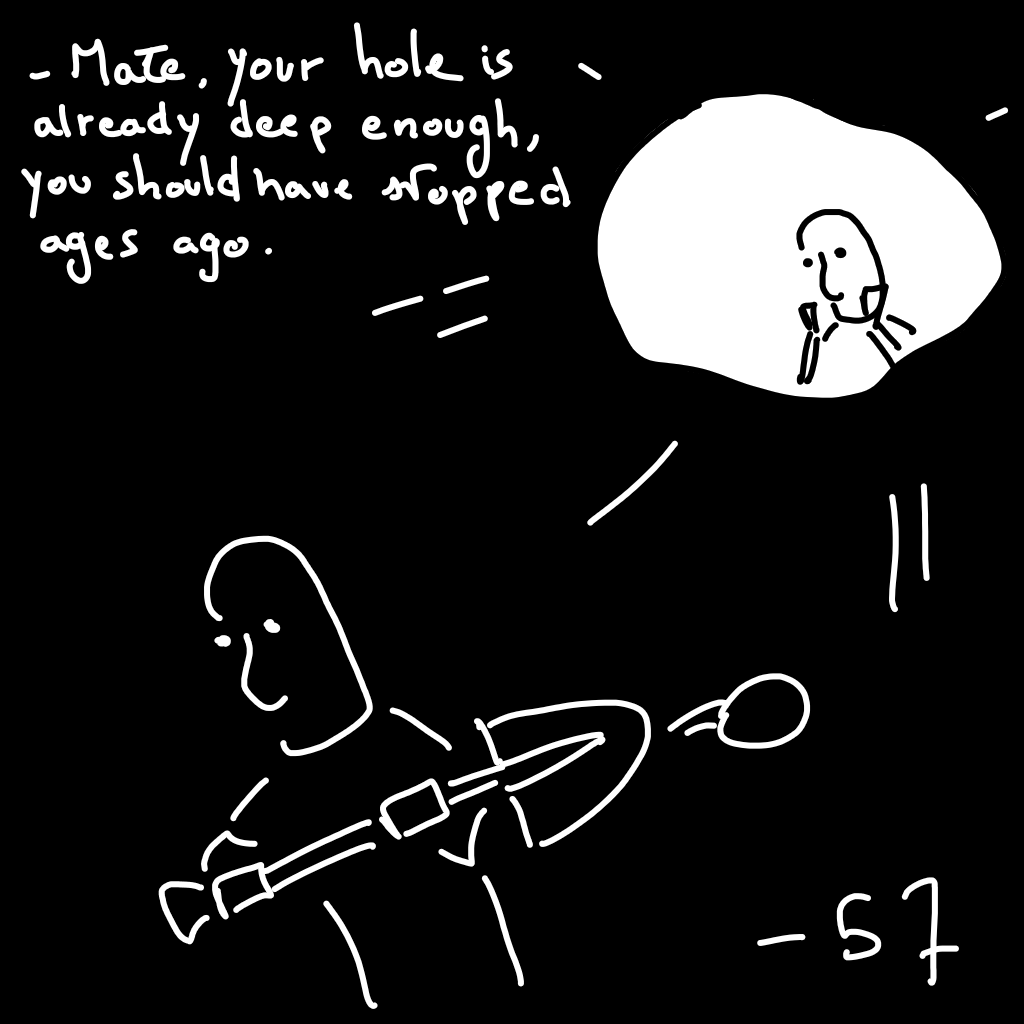 - Mate, your hole is
already deep enough,
you should have stopped
ages ago.
- 57